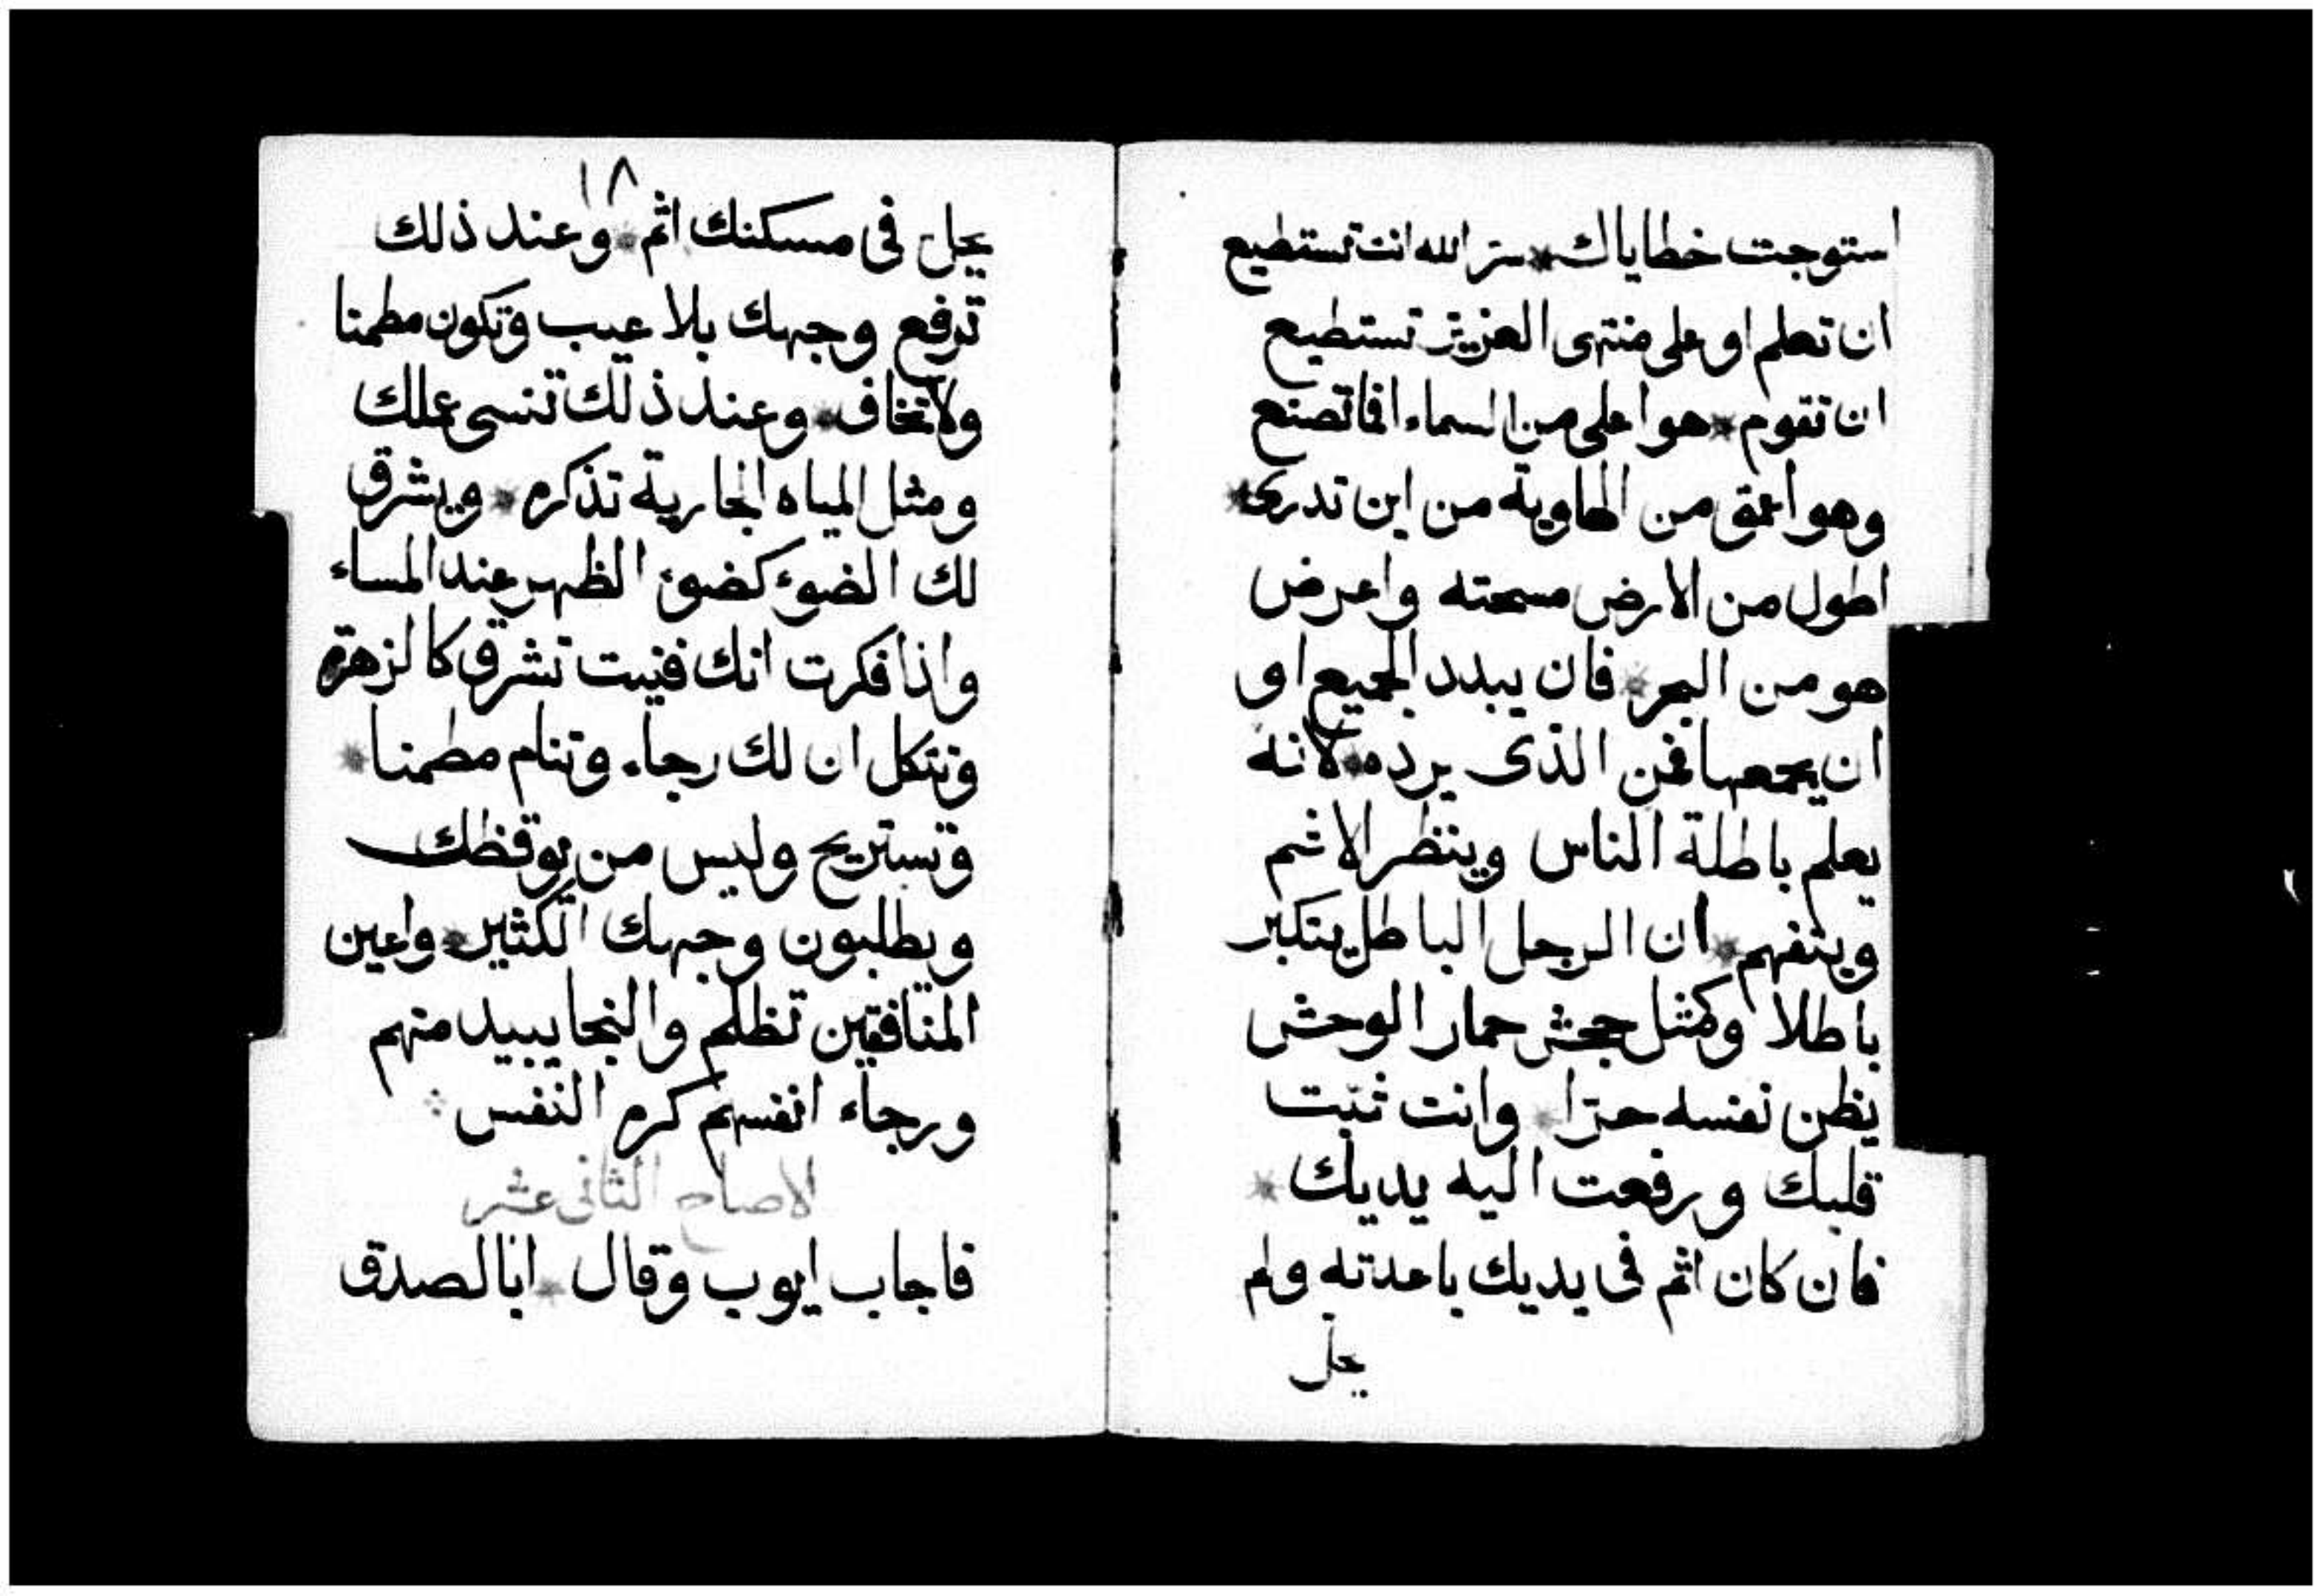 استوجبت خطاياك * سر الله انت تستطيع
ان تعلم او على منتهى العزيز تستطيع
ان تقوم * هو اعلى من السماء افما تصنع
وهو اعمق من الهاوية من اين تدرى *
اطول من الارض مسحته واعرض
هو من البحر * فان يبدد الجميع او
ان يجمعها فمن الذى يرده * لانه
يعلم باطلة الناس وينظر الاثم
ويتفهم * ان الرجل الباطل يتكبر
باطلا وكمثل جحش حمار الوحش
يظن نفسه حرا * وانت ثبت
قلبك ورفعت اليه يديك *
فان كان اثم فى يديك باعدته ولم
يحل
١٨
يحل فى مسكنك اثم * وعند ذلك
ترفع وجهك بلا عيب وتكون مطمنا
ولا تخاف * وعند ذلك تنسى عملك
ومثل المياه الجارية تذكره * ويشرق
لك الضوء كضوء الظهر عند المساء
واذا فكرت انك فنيت تشرق كالزهرة
وتتكل ان لك رجاء وتنام مطمنا *
وتستريح وليس من يوقظك
ويطلبون وجهك الكثير * واعين
المنافقين تظلم والنجا يبيد منهم
ورجاء انفسهم كره النفس
الاصاح الثانى عشر
فاجاب ايوب وقال * ابالصدق